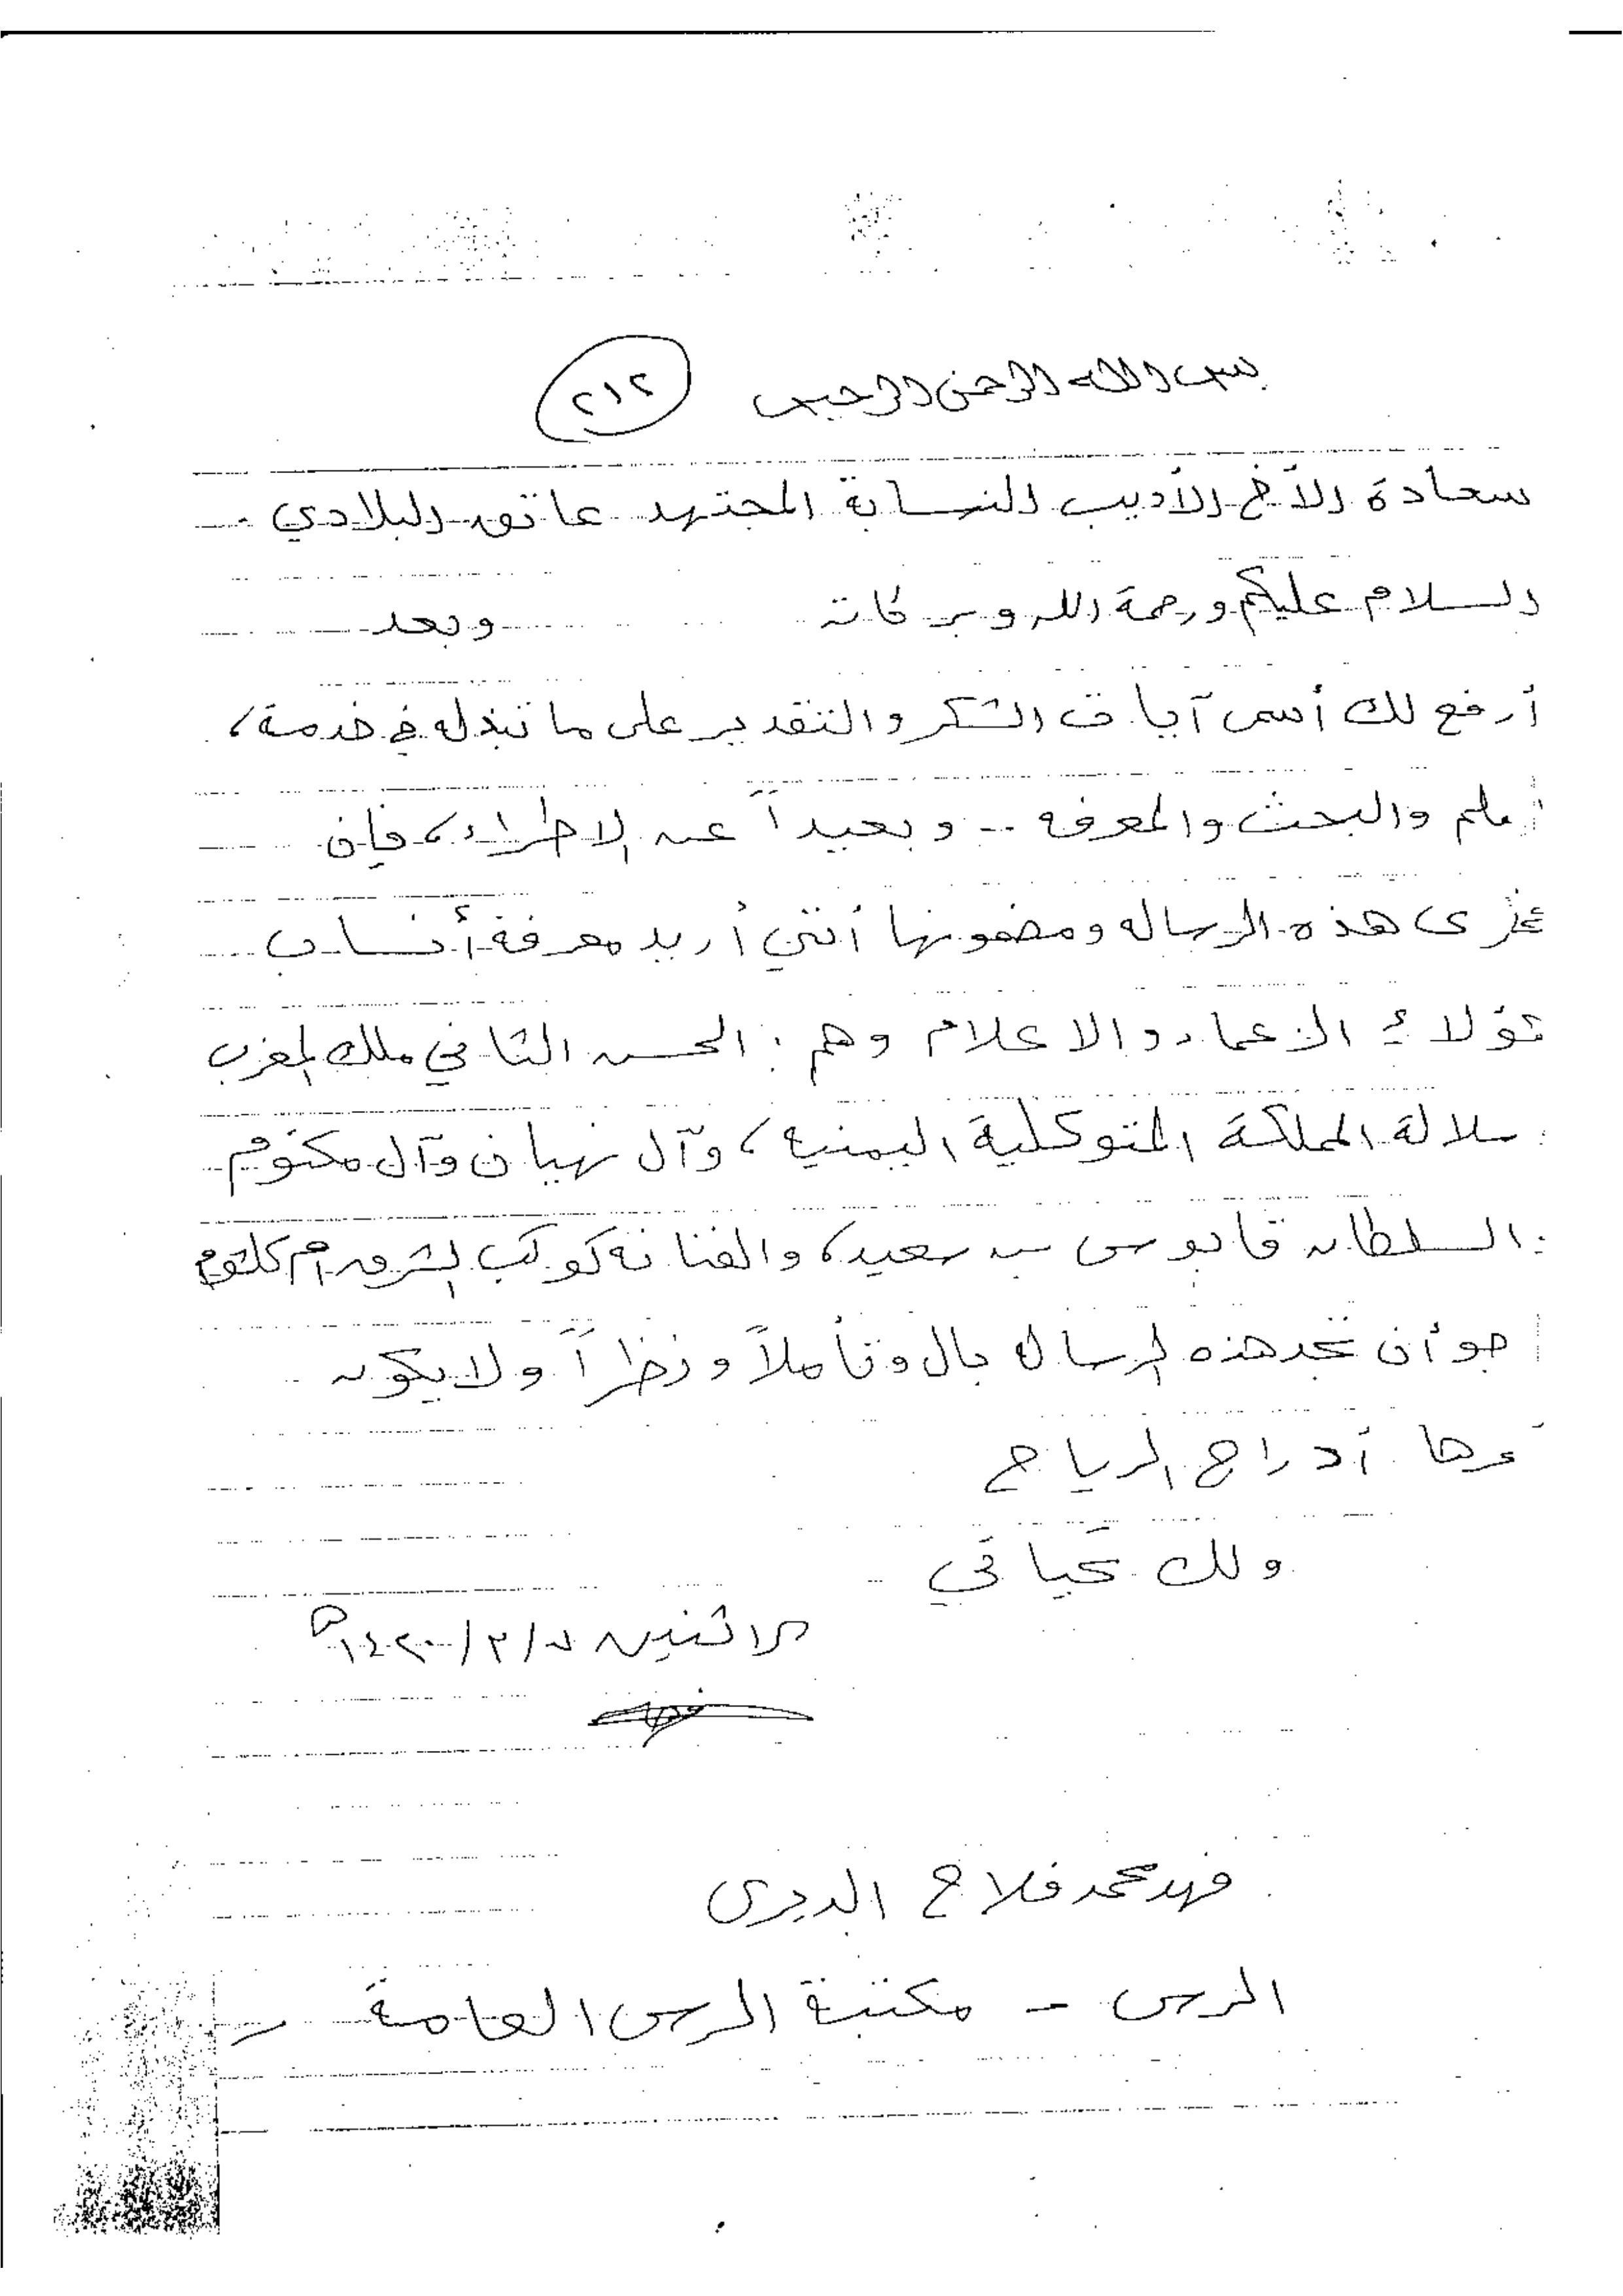 بسم الله الرحمن الرحيم ٢١٢
سعادة الأخ الأديب النسابة المجتهد عاتق البلادي
السلام عليكم ورحمة الله وبركاته وبعد
أرفع لك أسمى آيات الشكر والتقدير على ما تبذله في خدمة،
العلم والبحث والمعرفه .. وبعيداً عن الاطراء، فإن
مغزى هذه الرساله ومضمونها أنني أريد معرفة أنساب
هؤلاء الزعماء والاعلام وهم: الحسن الثاني ملك المغرب
سلالة المملكة المتوكلية اليمنيه، وآل نهيان وآل مكتوم
السلطان قابوس بن سعيد، والفنانة كوكب الشرق أم كلثوم
أرجو أن تجد هذه الرسالة بال وتأملاً ونظراً ولا يكون
أدراج الرياح
ولك تحياتي
الاثنين ٧/٣/١٤٢٠ه
فهد محمد فلاح
الرس - مكتبة الرس العامة